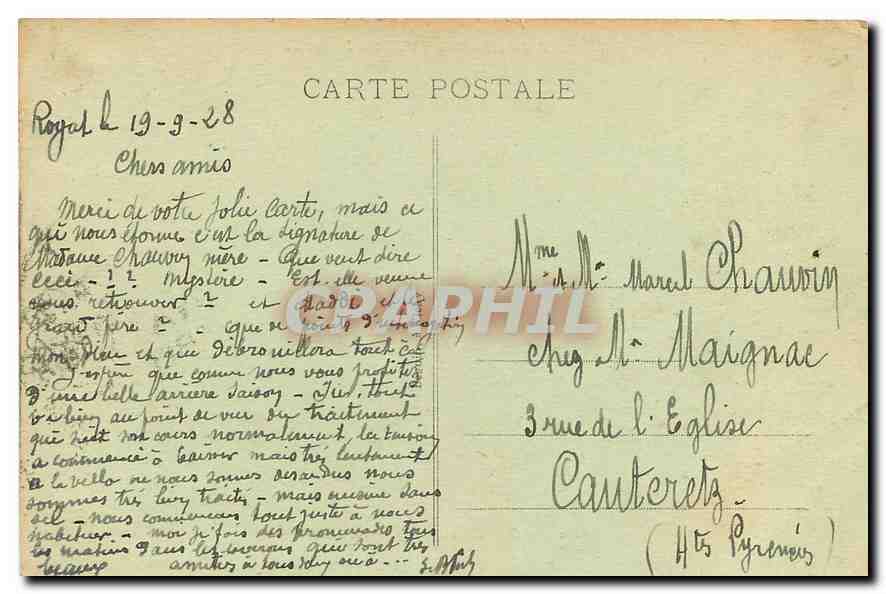 CARTE POSTALE
Royat le 19-9-28
Chers amis
Merci de votre jolie Carte, mais ce
qui nous étonne c'est la signature de
Madame Chauvin mère - Que veut dire
ceci - !? Mystère - Est-elle venue
vous retrouver ? et
grand père ? - que de points d'interrogation
mon Dieu et que débrouillera tout ça
J'espère que comme nous vous profitez
d'une belle arrière saison - Ici, tout
va bien au point de vue du traitement
qui suit son cours normalement, la tension
a commencé à baisser mais très lentement
à la villa où nous sommes descendus nous
sommes très bien traités - mais cuisine sans
sel - nous commençons tout juste à nous
habituer - moi je fais des promenades tous
les matins dans les environs qui sont très
beaux amitiés à tous
Mme et Mr Marcel Chauvin
chez Mr Maignac
3 rue de l'Eglise
Cauteretz -
(Htes Pyrenées)
CPAPHIL